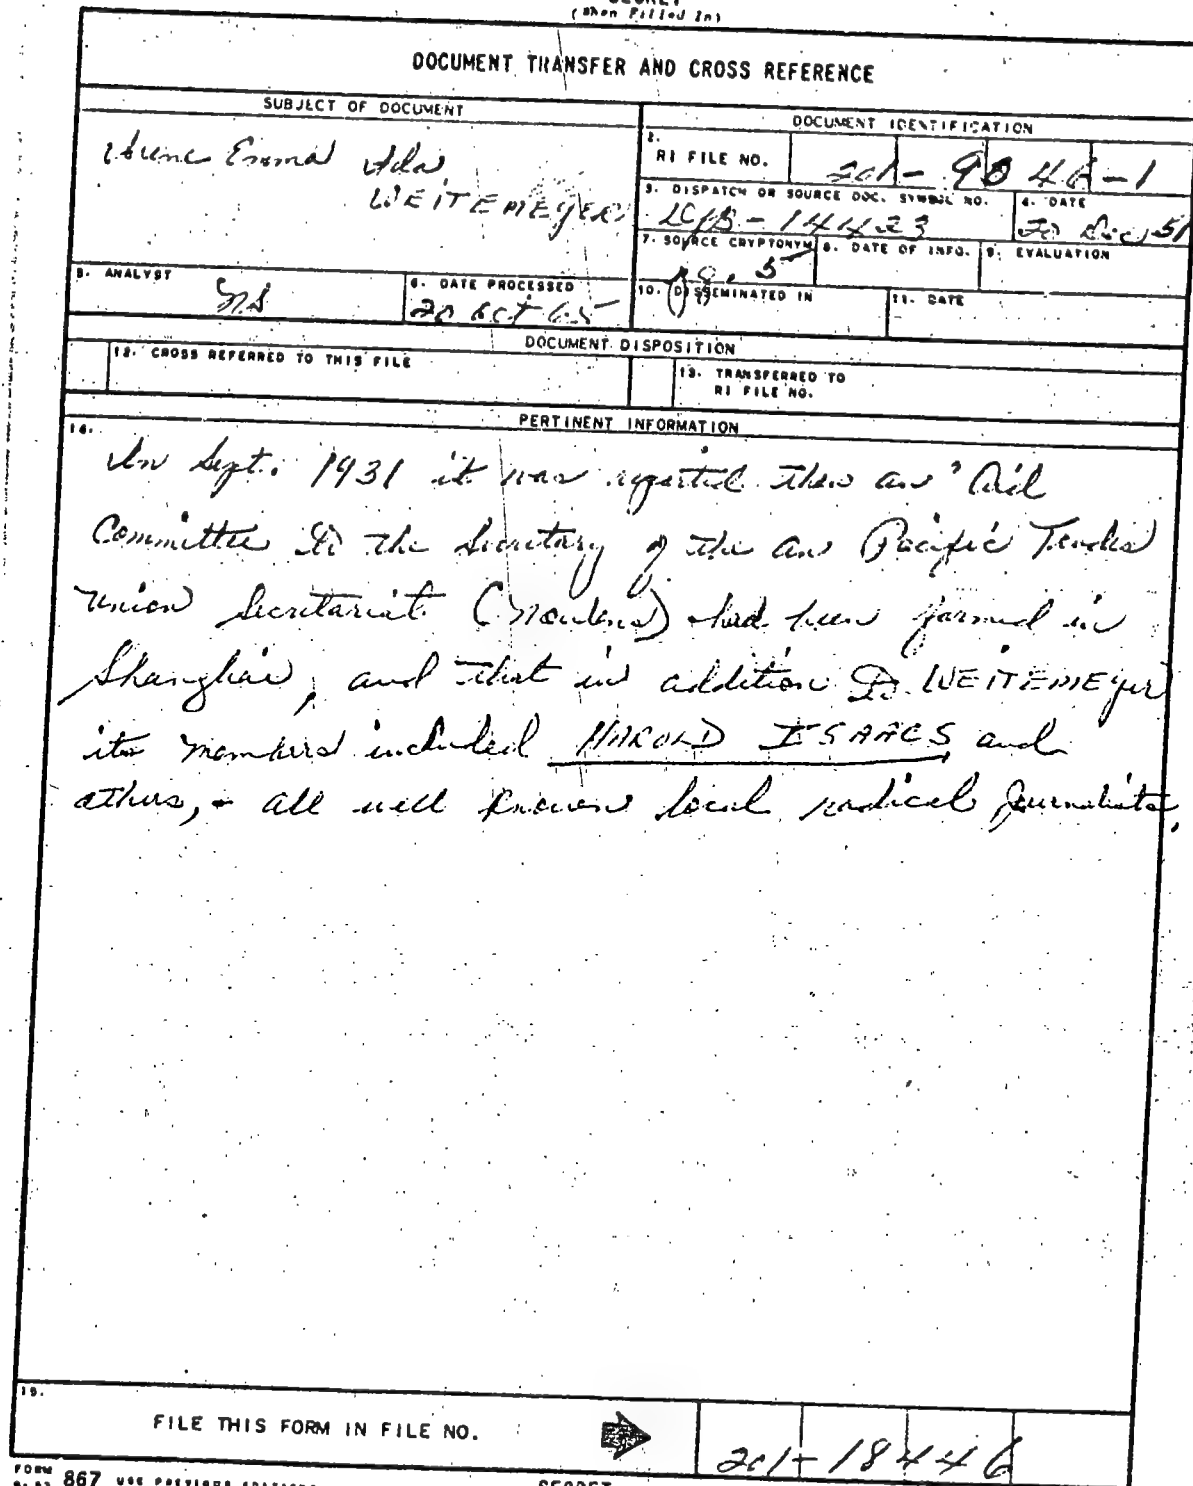 SECRET
(When Filled In)
DOCUMENT TRANSFER AND CROSS REFERENCE
SUBJECT OF DOCUMENT
DOCUMENT IDENTIFICATION
Emma Ada
WEITEMEYER
2.
RI FILE NO.
201-9046-1
3. DISPATCH OR SOURCE DOC. SYMBOL NO.
4. DATE
-14423
20 Dec 51
7. SOURCE CRYPTONYM
8. DATE OF INFO.
9. EVALUATION
pg. 5
5. ANALYST
6. DATE PROCESSED
20 Oct 65
10. DISSEMINATED IN
11. DATE
DOCUMENT DISPOSITION
12. CROSS REFERRED TO THIS FILE
13. TRANSFERRED TO
RI FILE NO.
PERTINENT INFORMATION
14.
In Sept. 1931 it was reported that an "Aid
Committee to the Secretary of the Pacific Trades
Union Secretariat (Noulens) had been formed in
Shanghai, and that in addition to WEITEMEYER
its members included HAROLD ISAACS and
others, - all well known local radical journalists.
15.
FILE THIS FORM IN FILE NO.
201-18446
FORM
867 USE PREVIOUS EDITIONS
SECRET